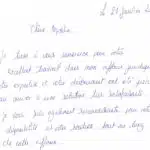 Le 21 Janvier 2
Chère
Je tiens à vous remercier pour votre
excellent travail dans mon affaire juridique
Votre expertise et votre dévouement ont été
au une solution très satisfaisante
Je vous suis également reconnaissante pour votre
disponibilité et votre soutien tout au long
de cette affaire.